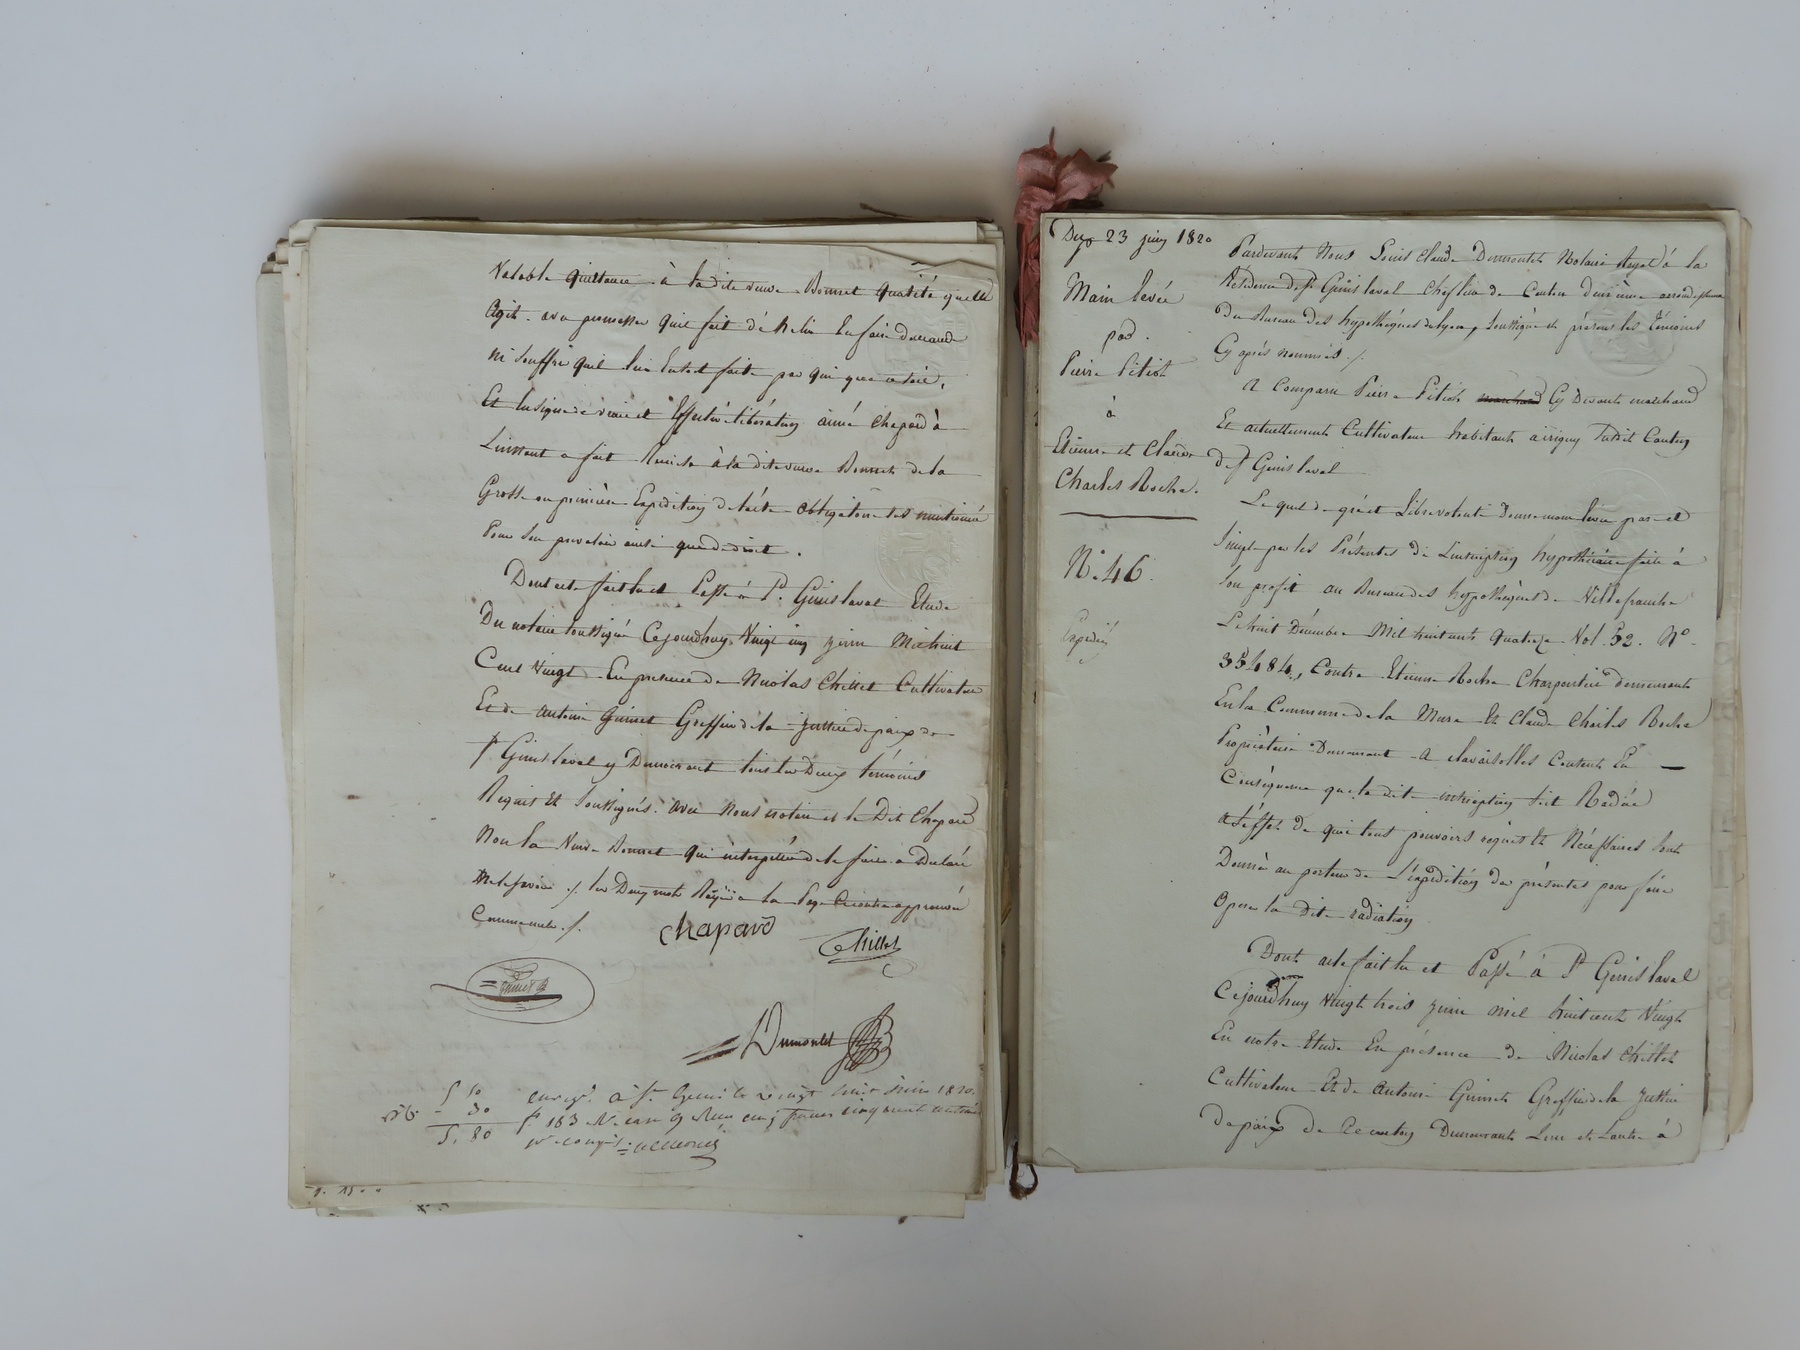 Valable quittance à la dite veuve Bonnet qualité quelle
Agit. avec promesse qu'il fait de ne lui En faire demande
ni souffrir quil lui En soit faite par qui que ce soit,
Et En signe de vraie et Effective libération aimé chapard à
Linstant a fait Remise à la dite veuve Bonnet de la
Grosse ou première Expedition de lacte obligatoire
Pour Son prevaloir ainsi que de droit.
Dont acte fait lu et Passé à St. Genis laval Etude
Du notaire soussigné Cejourdhuy Vingt juin Mil huit
Cent Vingt En presence de Nicolas Chillet Cultivateur
Et de antoine Guinet Greffier de la justice de paix de
St. Genis laval y Demeurant tous les Deux témoins
Requis Et Soussignés. avec nous notaire et le Dit Chapard
Non la Veuve Bonnet qui interpellée de le faire a Déclaré
Ne le savoir ./. les Deux mots Rayés a la Page approuvée
Comme nuls ./.
Chapard
Chillet
Guinet
Dumontet
5 50
30
5. 80
enregt. à St. Genis le vingt juin 1820.
fo 183 Ro. case 9 Reçu cinq francs cinquante centimes
Du 23 juin 1820
Main levée
par
Pierre Pitiot
à
Etienne et Claude
Charles Roche.
No. 46.
Expédié
Pardevant Nous Louis Claude Dumontet Notaire Royal à la
Résidence de St Genis laval Cheflieu de Canton deuxième arrondissement
Du Bureau des hypothéques de lyon, Soussigné et présens les Témoins
Cy après nommés ./.
A Comparu Pierre Pitiot marchand Cy Devant marchand
Et actuellement Cultivateur habitant à irigny Susdit Canton
de St Genis laval
Le quel de gré et Libre volonté Donne main levée pure et
Simple par les Présentes de Linscription hypothécaire faite à
Son profit au Bureau des hypothèques de Villefranche
Le huit Décembre Mil huit cent quatorze Vol. 52. No.
35484, Contre Etienne Roche Charpentier demeurant
En la Commune de la Mure Et Claude Charles Roche
Propriétaire Demeurant A claveisolles Consent En
Conséquence que la dite inscription soit Radiée
à l'effet de quoi tout pouvoirs requis Et Nécéssaires Sont
Donnés au porteur de L'expédition des présentes pour faire
Operer la Dite radiation
Dont acte fait lu et Passé à St Genis laval
Cejourdhuy Vingt trois juin mil huit cent Vingt
En notre Etude En présence de Nicolas Chillet
Cultivateur Et de Antoine Guinet Greffier de la Justice
de paix de Ce canton Demeurant Lun et Lautre à